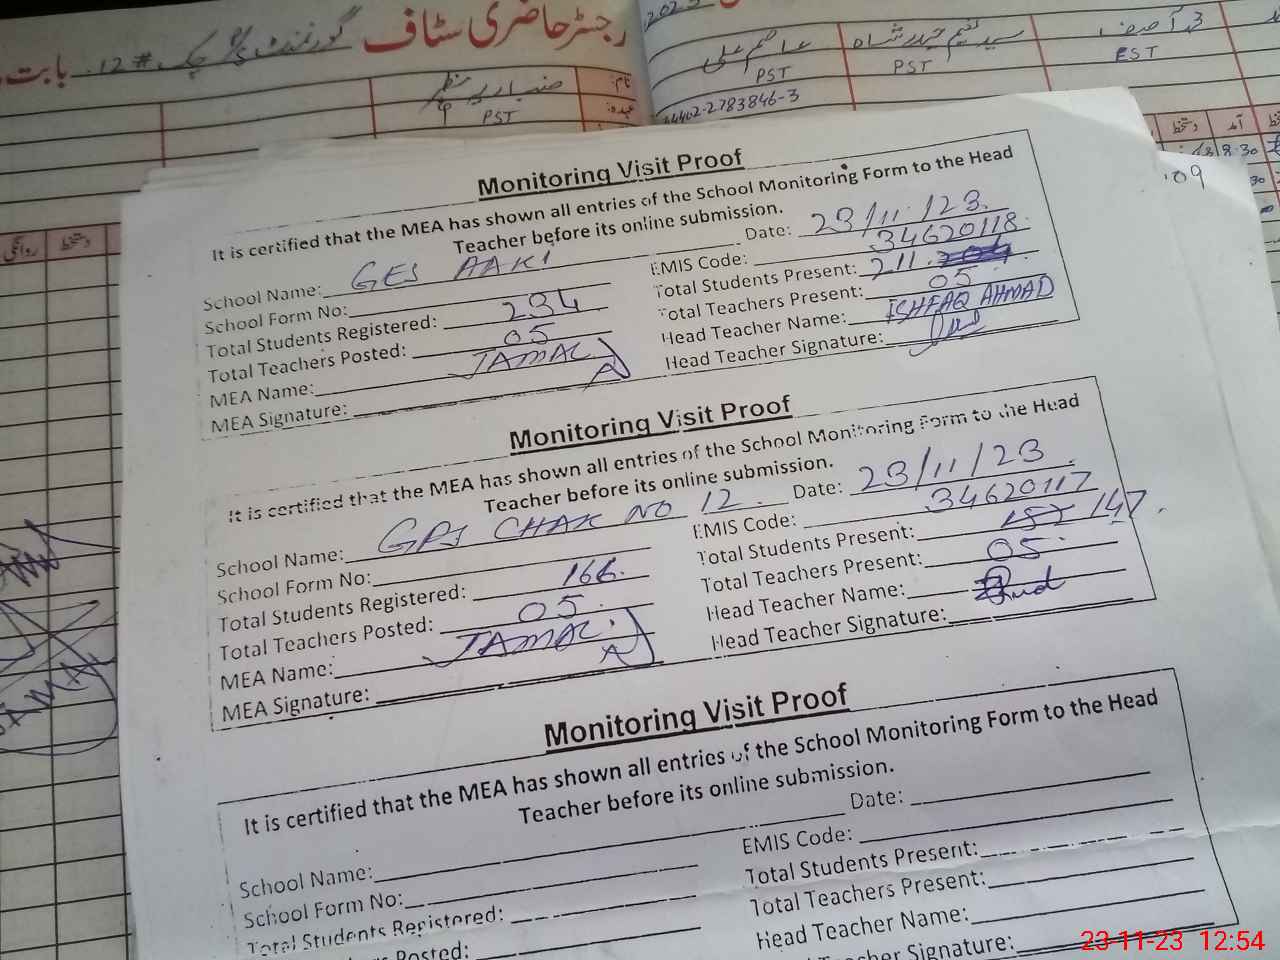 رجسٹر حاضری سٹاف گورنمنٹ چک #12. بابت
2023
نام:
عہدہ:
PST
PST
PST
EST
34402-2783846-3
دستخط
روانگی
آمد
دستخط
8:30
Monitoring Visit Proof
It is certified that the MEA has shown all entries of the School Monitoring Form to the Head
Teacher before its online submission.
School Name: GES AAKI Date: 23/11/23.
School Form No: EMIS Code: 34620118
Total Students Registered: 234 Total Students Present: 211.
Total Teachers Posted: 05 Total Teachers Present: 05
MEA Name: JAMAL Head Teacher Name: ISHFAQ AHMAD
MEA Signature: Head Teacher Signature:
Monitoring Visit Proof
It is certified that the MEA has shown all entries of the School Monitoring Form to the Head
Teacher before its online submission.
School Name: GPS CHAK NO 12. Date: 23/11/23
School Form No: EMIS Code: 34620117
Total Students Registered: 166. Total Students Present: 147.
Total Teachers Posted: 05. Total Teachers Present: 05.
MEA Name: JAMAL. Head Teacher Name:
MEA Signature: Head Teacher Signature:
Monitoring Visit Proof
It is certified that the MEA has shown all entries of the School Monitoring Form to the Head
Teacher before its online submission.
School Name: Date:
School Form No: EMIS Code:
Total Students Registered: Total Students Present:
Posted: Total Teachers Present:
Head Teacher Name:
Teacher Signature:
23-11-23 12:54